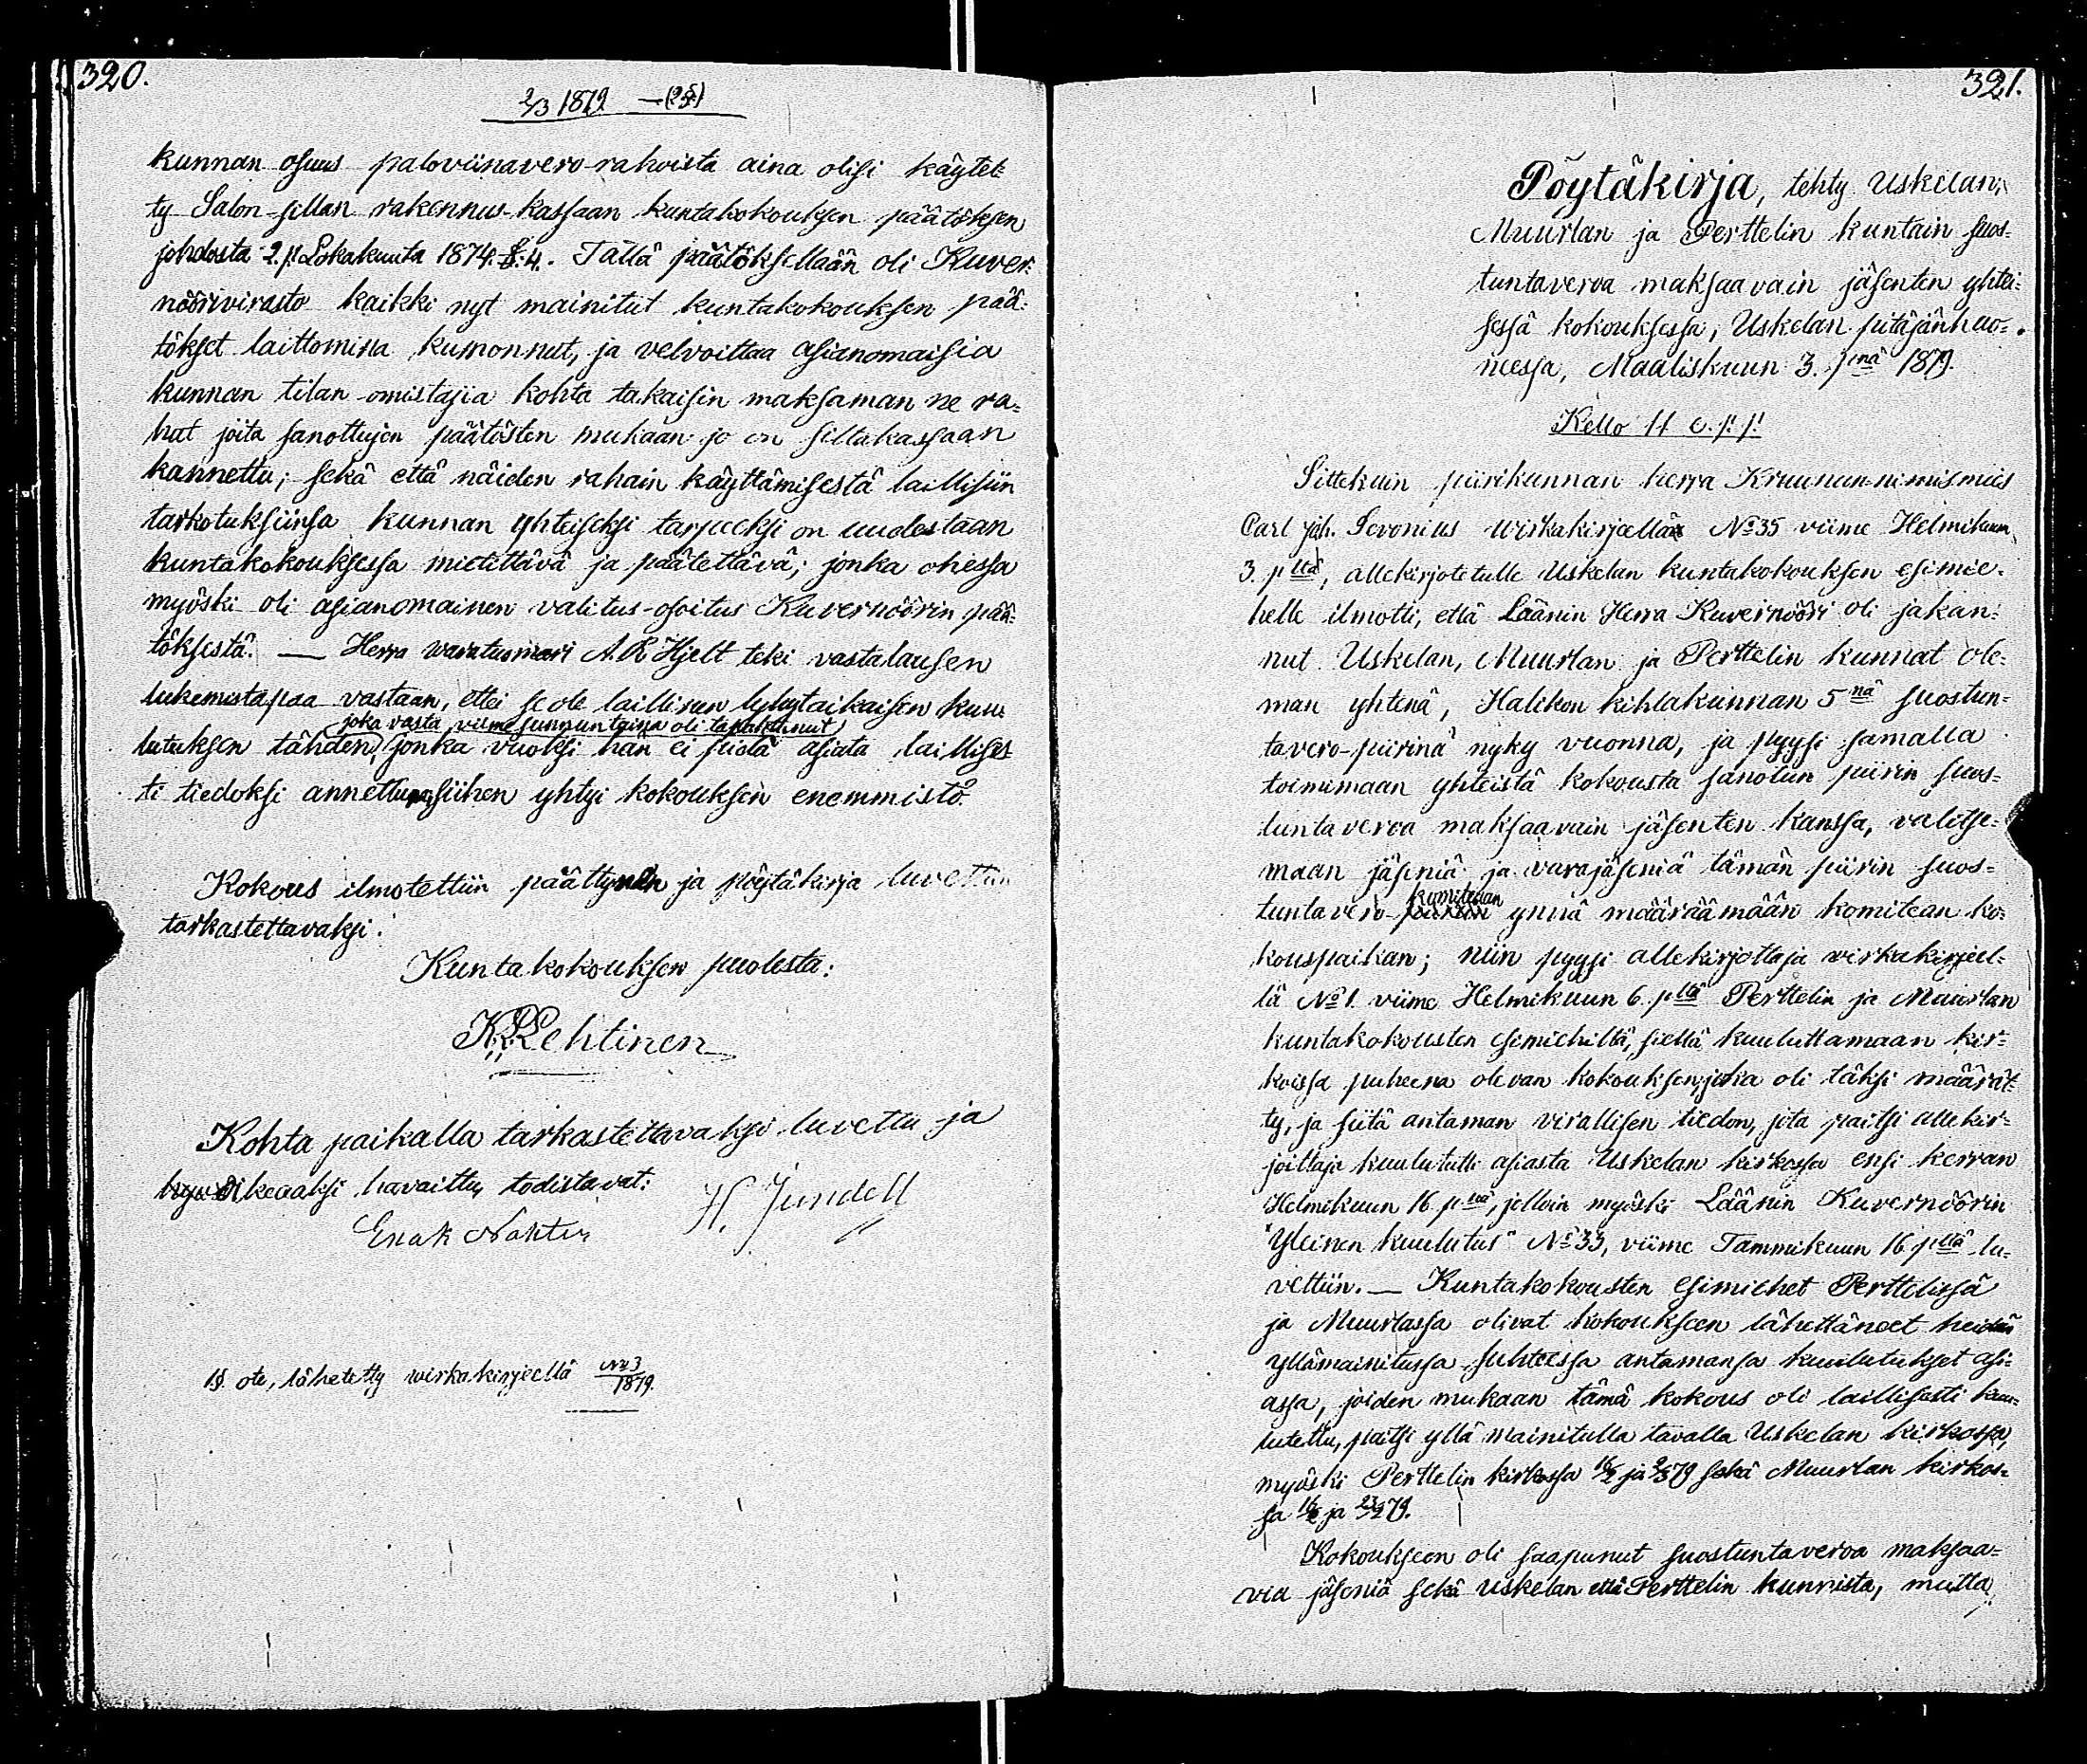 320.
2/3 1879 — (2§)
kunnan osuus paloviinavero-rahoista aina olisi käytet-
ty Salon-sillan rakennus-kassaan kuntakokouksen päätöksen
johdosta 2 p. Lokakuuta 1874. §. 4. Tällä päätöksellään oli Kuver-
nöörivirasto kaikki nyt mainitut kuntakokouksen pää-
tökset laittomina kumonnut, ja velvoittaa asianomaisia
kunnan tilan-omistajia kohta takaisin maksaman ne ra-
hat joita sanottujen päätösten mukaan jo on siltakassaan
kannettu; sekä että näiden rahain käyttämisestä laillisiin
tarkotuksiinsa kunnan yhteiseksi tarpeeksi on uudestaan
kuntakokouksessa mietittävä ja päätettävä; jonka ohessa
myöski oli asianomainen valitus-osoitus Kuvernöörin pää-
töksestä. — Herra waratuomari A. R Hjelt teki vastalausen
lukemistapaa vastaan, ettei se ole laillisen lyhytaikaisen kuu-
joka vasta viime sunnuntaina oli tapahtunut
lutuksen tähden, jonka vuoksi hän ei pidä asiata laillises-
ti tiedoksi annettuna, siihen yhtyi kokouksen enemmistö.
Kokous ilmotettiin päättyneen ja pöytäkirja luvettiin
tarkastettavaksi.
Kuntakokouksen puolesta:
K. Lehtinen
Kohta paikalla tarkastettavaksi luvettu ja
oikeaaksi havaittu, todistavat:
Enok Nohter H. Jundell
1§. ote, lähetetty wirkakirjeellä No 3/1879.
321.
Pöytäkirja, tehty Uskelan,
Muurlan ja Perttelin kuntain suos-
tuntaveroa maksaavain jäsenten yhtei-
sessä kokouksessa, Uskelan pitäjänhuo-
neessa, Maaliskuun 3. pnä 1879.
Kello 11 e. p. p.
Sittekuin piirikunnan herra Kruunun-nimismies
Carl Joh. Sevonius wirkakirjeellä No 35 viime Helmikuun
3. pltä, allekirjotetulle Uskelan kuntakokouksen esimie-
helle ilmotti, että Läänin Herra Kuvernööri oli jakan-
nut Uskelan, Muurlan ja Perttelin kunnat ole-
man yhtenä, Halikon kihlakunnan 5nä suostun-
tavero-piirinä nyky vuonna, ja pyysi samalla
toimimaan yhteistä kokousta sanotun piirin suos-
tuntaveroa maksaavain jäsenten kanssa, valitse-
maan jäseniä ja varajäseniä tämän piirin suos-
komitean
tuntavero- ynnä määräämään komitean ko-
kouspaikan; niin pyysi allekirjottaja virkakirjeel-
lä No 1 viime Helmikuun 6. pltä Perttelin ja Muurlan
kuntakokousten esimiehiltä, siellä kuuluttamaan kir-
koissa puheena olevan kokouksen, joka oli täksi määrät-
ty, ja siitä antaman virallisen tiedon, jota paitsi allekir-
joittaja kuulututti asiasta Uskelan kirkossa ensi kerran
Helmikuun 16 pnä, jolloin myöski Läänin Kuvernöörin
"Yleinen kuulutus" No 33, viime Tammikuun 16 pltä lu-
vettiin. — Kuntakokousten esimiehet Perttelissä
ja Muurlassa olivat kokoukseen lähettäneet heidän
yllämainitussa suhteessa antamansa kuulutukset asi-
assa, joiden mukaan tämä kokous oli laillisesti kuu-
lutettu, paitsi yllä mainitulla tavalla Uskelan kirkossa,
myöski Perttelin kirkossa 16/2 ja 2/3 79 sekä Muurlan kirkos-
sa 16/2 ja 23/2 79.
Kokoukseen oli saapunut suostuntaveroa maksaa-
via jäseniä sekä Uskelan että Perttelin kunnista, mutta